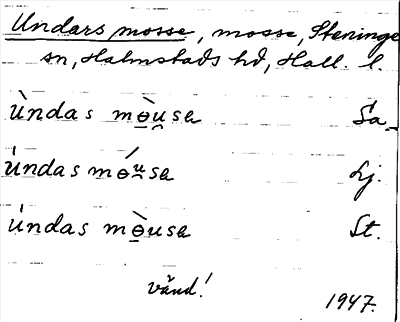 Undars mosse, mosse, Steninge
sn, Halmstads hd, Hall. l.
ùndas mө̀u̯sa Sa.
úndas mө́u̯sa Lj.
úndas mө̀usa St.
vänd!
1947.